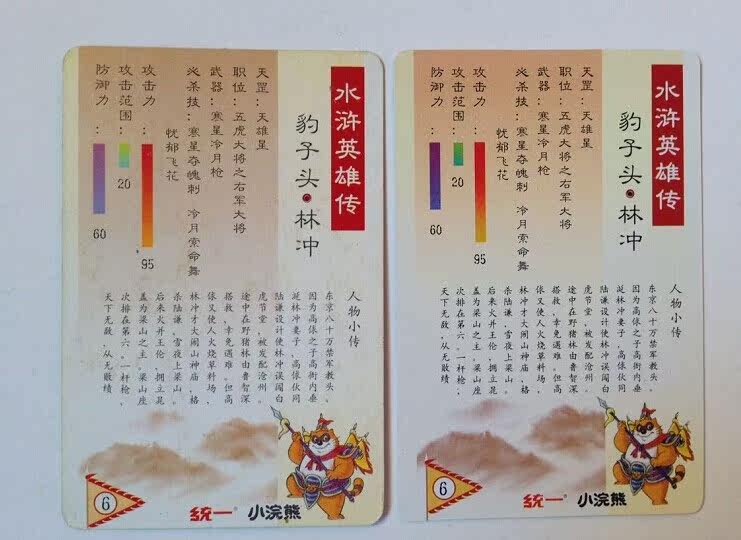 水浒英雄传
豹子头·林冲
天罡:天雄星
职位:五虎大将之右军大将
武器:寒星冷月枪
必杀技:寒星夺魄刺 冷月索命舞
忧郁飞花
攻击力: 95
攻击范围: 20
防御力: 60
人物小传
东京八十万禁军教头,
因为高俅之子高衙内垂
涎林冲妻子,高俅伙同
陆谦设计使林冲误闯白
虎节堂,被发配沧州。
途中在野猪林由鲁智深
搭救,幸免遇难。但高
俅又使人火烧草料场,
林冲才大闹山神庙,格
杀陆谦,雪夜上梁山。
后来火并王伦,拥立晁
盖为梁山之主。梁山座
次排在第六。一杆枪,
天下无敌,从无败绩
6
统一® 小浣熊
水浒英雄传
豹子头·林冲
天罡:天雄星
职位:五虎大将之右军大将
武器:寒星冷月枪
必杀技:寒星夺魄刺 冷月索命舞
忧郁飞花
攻击力: 95
攻击范围: 20
防御力: 60
人物小传
东京八十万禁军教头,
因为高俅之子高衙内垂
涎林冲妻子,高俅伙同
陆谦设计使林冲误闯白
虎节堂,被发配沧州。
途中在野猪林由鲁智深
搭救,幸免遇难。但高
俅又使人火烧草料场,
林冲才大闹山神庙,格
杀陆谦,雪夜上梁山。
后来火并王伦,拥立晁
盖为梁山之主。梁山座
次排在第六。一杆枪,
天下无敌,从无败绩
6
统一® 小浣熊